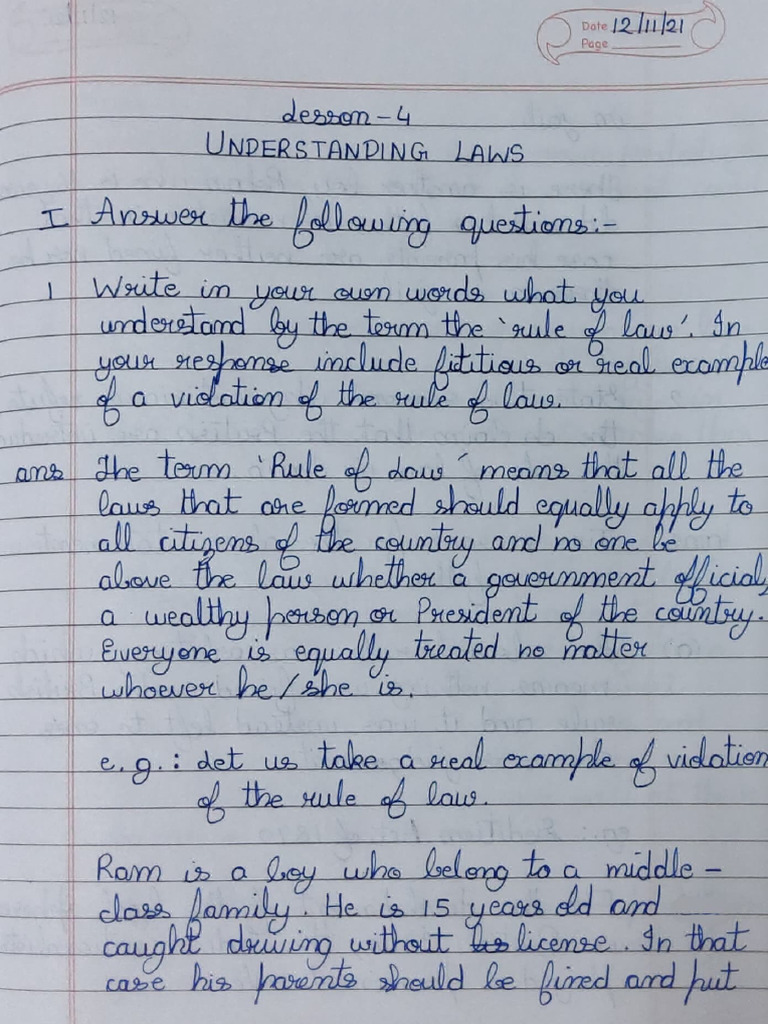 Date 12/11/21
Page
Lesson-4
UNDERSTANDING LAWS
I Answer the following questions:-
1 Write in your own words what you
understand by the term the 'rule of law'. In
your response include fititious or real example
of a violation of the rule of law.
ans The term 'Rule of Law' means that all the
laws that are formed should equally apply to
all citizens of the country and no one be
above the law whether a government official,
a wealthy person or President of the country.
Everyone is equally treated no matter
whoever he/she is.
e.g.: Let us take a real example of violation
of the rule of law.
Ram is a boy who belong to a middle-
class family. He is 15 years old and
caught driving without license. In that
case his parents should be fined and put